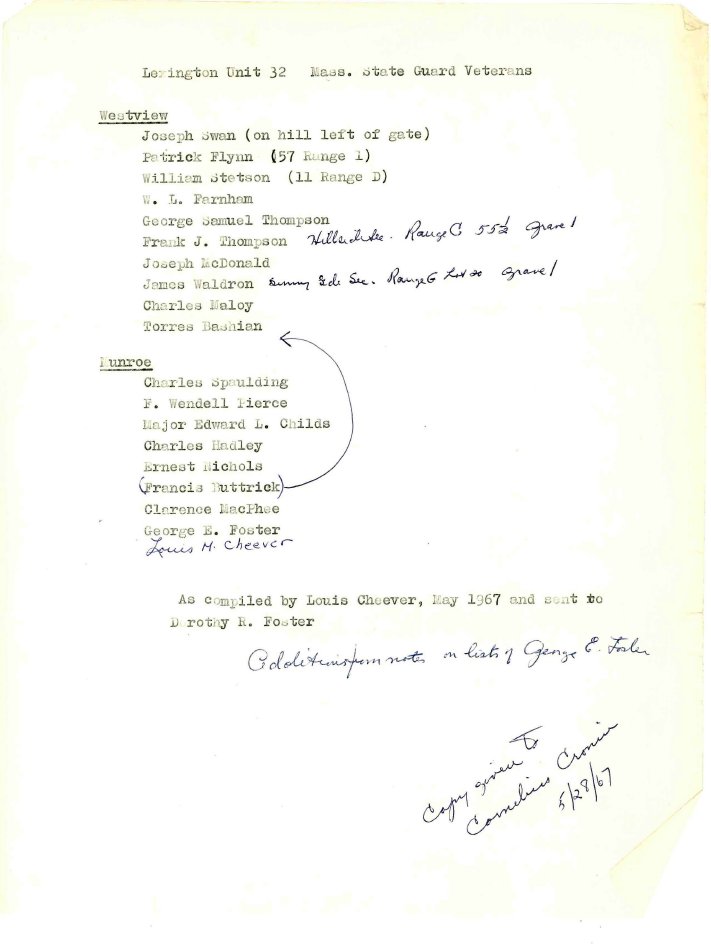 Lexington Unit 32 Mass. State Guard Veterans
Westview
Joseph Swan (on hill left of gate)
Patrick Flynn (57 Range 1)
William Stetson (11 Range D)
W. L. Farnham
George Samuel Thompson
Frank J. Thompson Hillside Sec. Range C 55½ Grave 1
Joseph McDonald
James Waldron Sunny Side Sec. Range G Lot 20 Grave 1
Charles Maloy
Torres Bashian
Munroe
Charles Spaulding
F. Wendell Pierce
Major Edward L. Childs
Charles Hadley
Ernest Nichols
(Francis Buttrick)
Clarence MacPhee
George E. Foster
Louis M. Cheever
As compiled by Louis Cheever, May 1967 and sent to
Dorothy R. Foster
Additions from notes on lists of George E. Foster
Copy given to
Cornelius Cronin
5/28/67